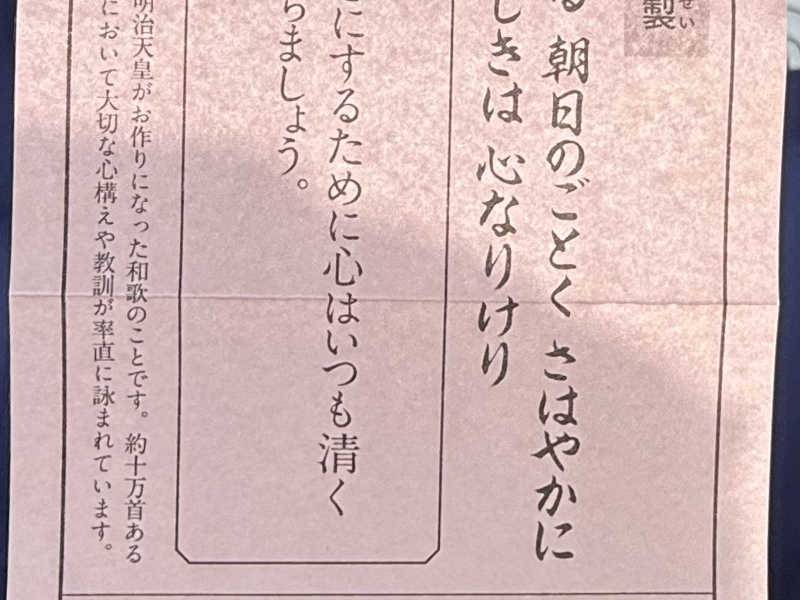 製
せい
朝日のごとく さはやかに
しきは 心なりけり
にするために心はいつも清く
ちましょう。
明治天皇がお作りになった和歌のことです。約十万首ある
において大切な心構えや教訓が率直に詠まれています。